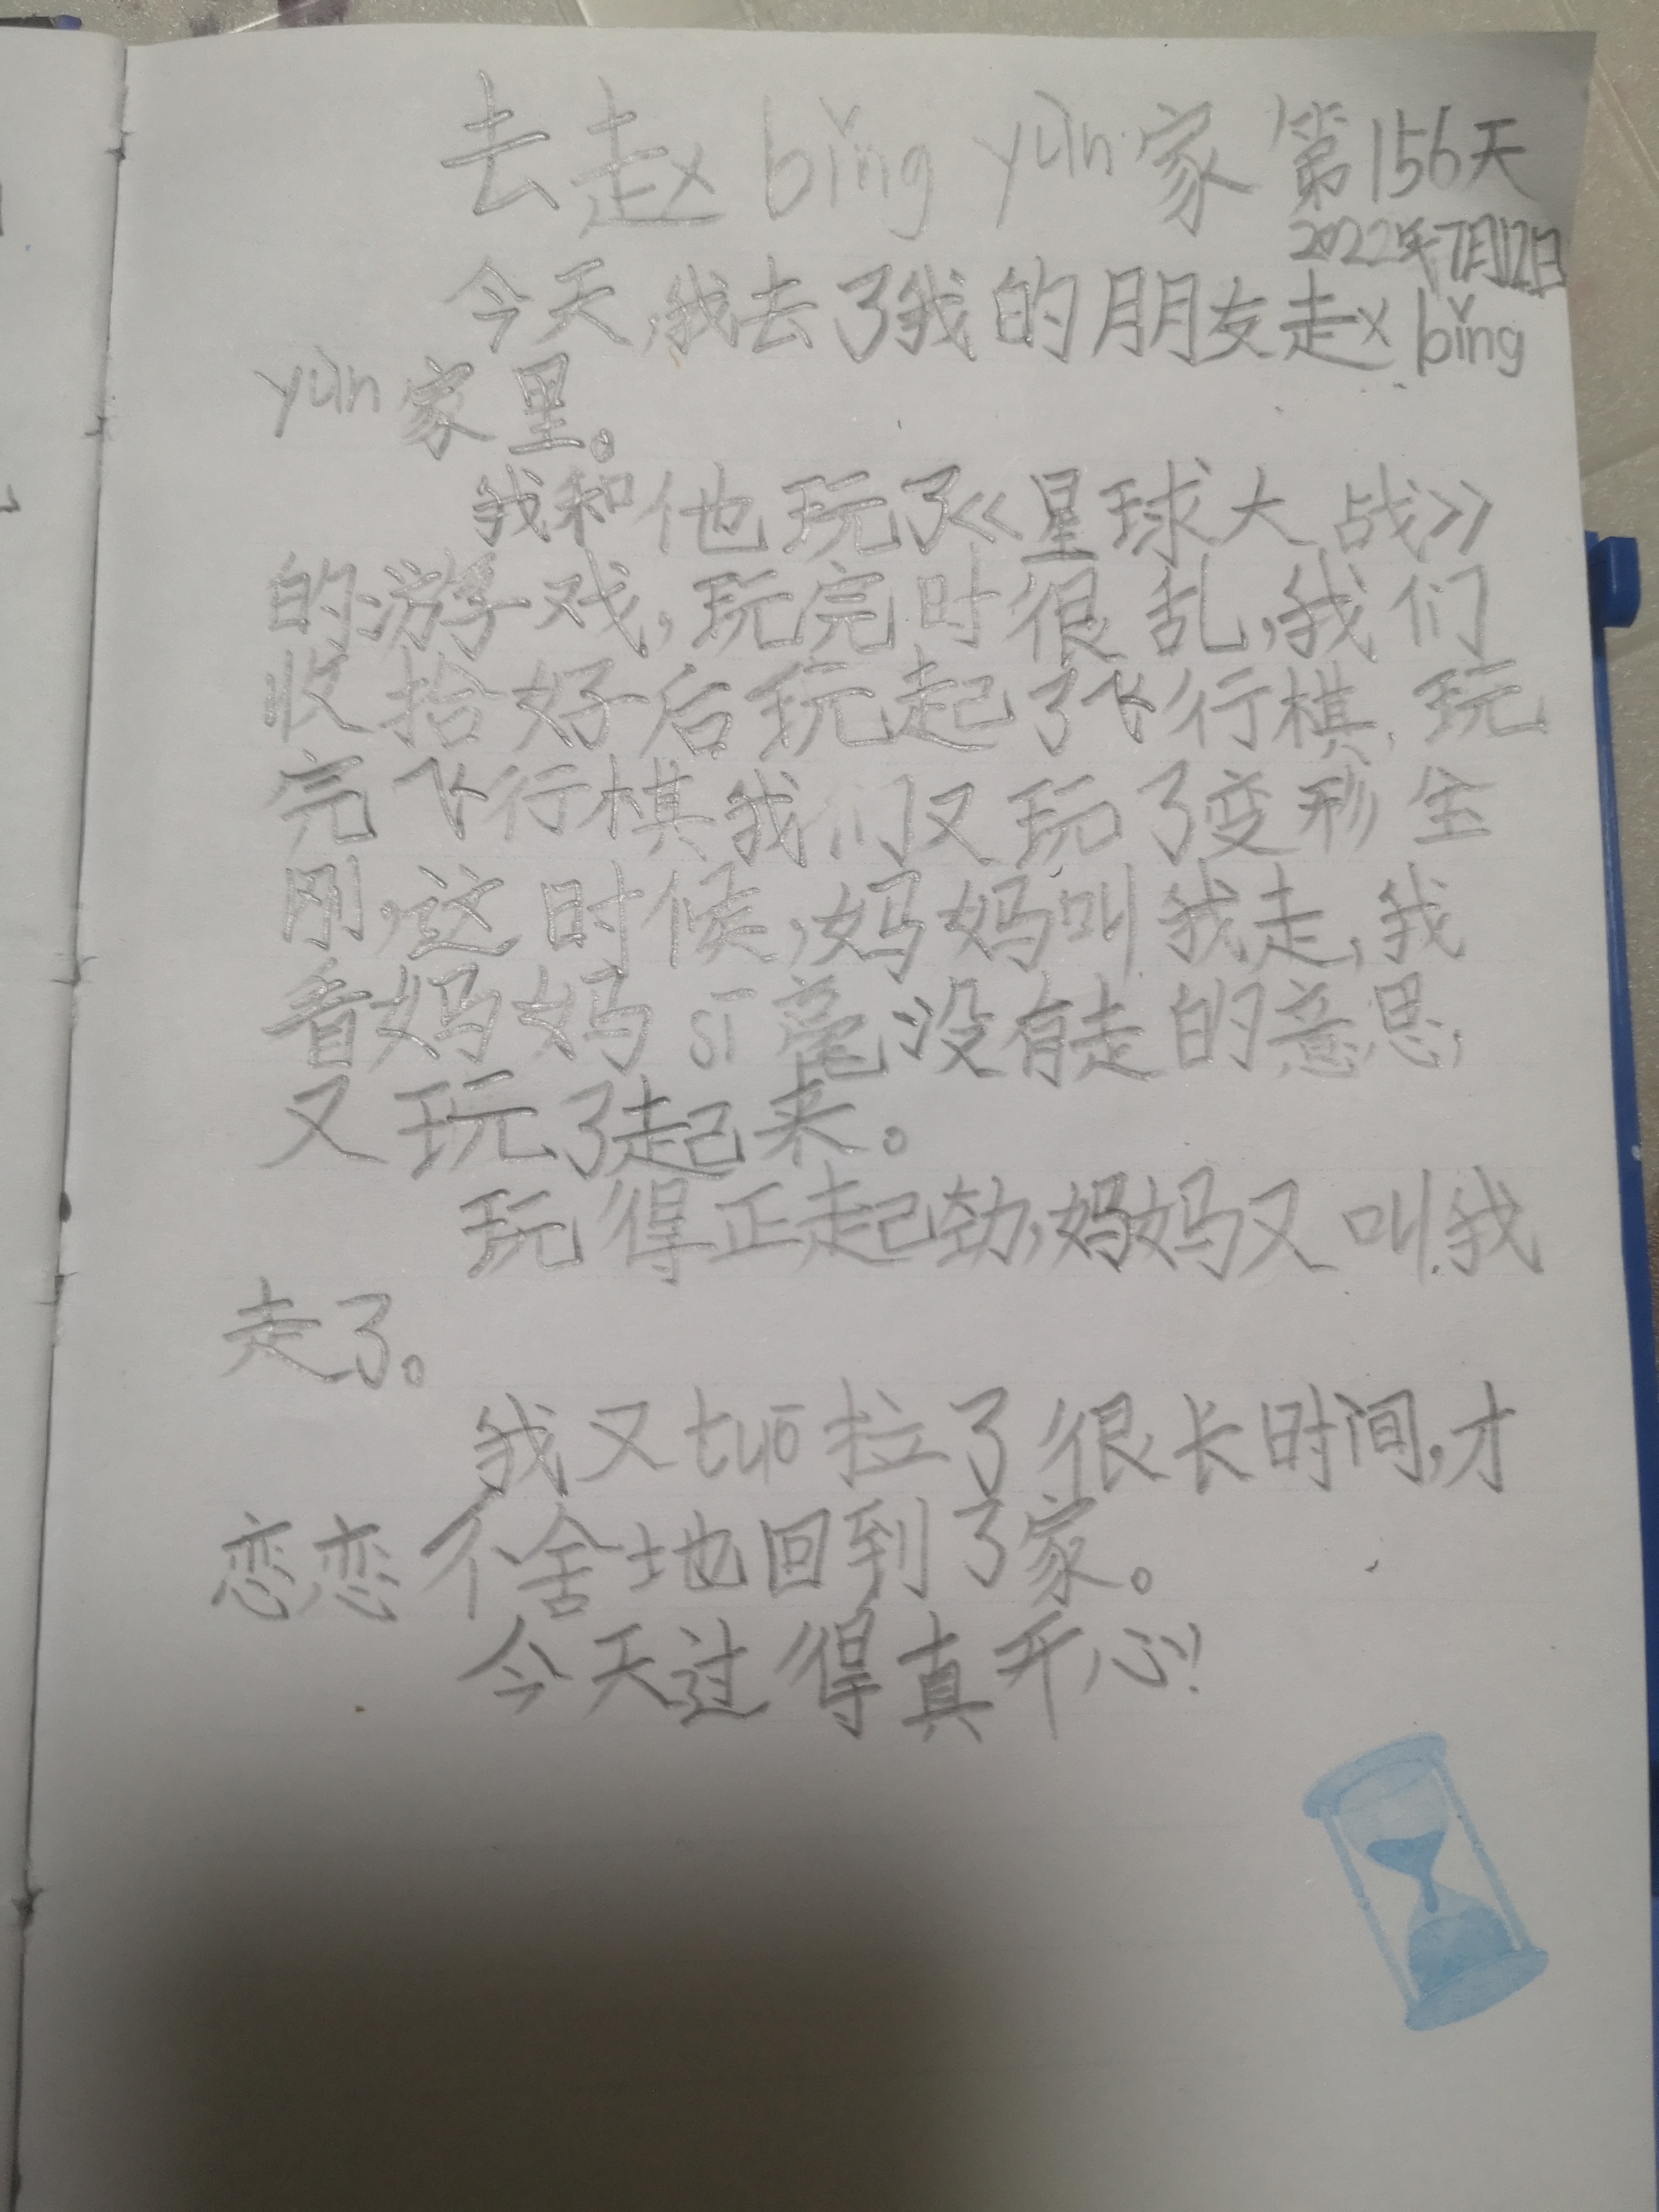 去赵 bǐng yùn 家 第156天
2022年7月12日
今天,我去了我的朋友赵 bǐng
yùn 家里。
我和他玩了《星球大战》
的游戏,玩完时很乱,我们
收拾好后玩起了飞行棋,玩
完飞行棋我们又玩了变形金
刚,这时候,妈妈叫我走,我
看妈妈 sī 毫没有走的意思,
又玩了起来。
玩得正起劲,妈妈又叫我
走了。
我又 tuō 拉了很长时间,才
恋恋不舍地回到了家。
今天过得真开心!